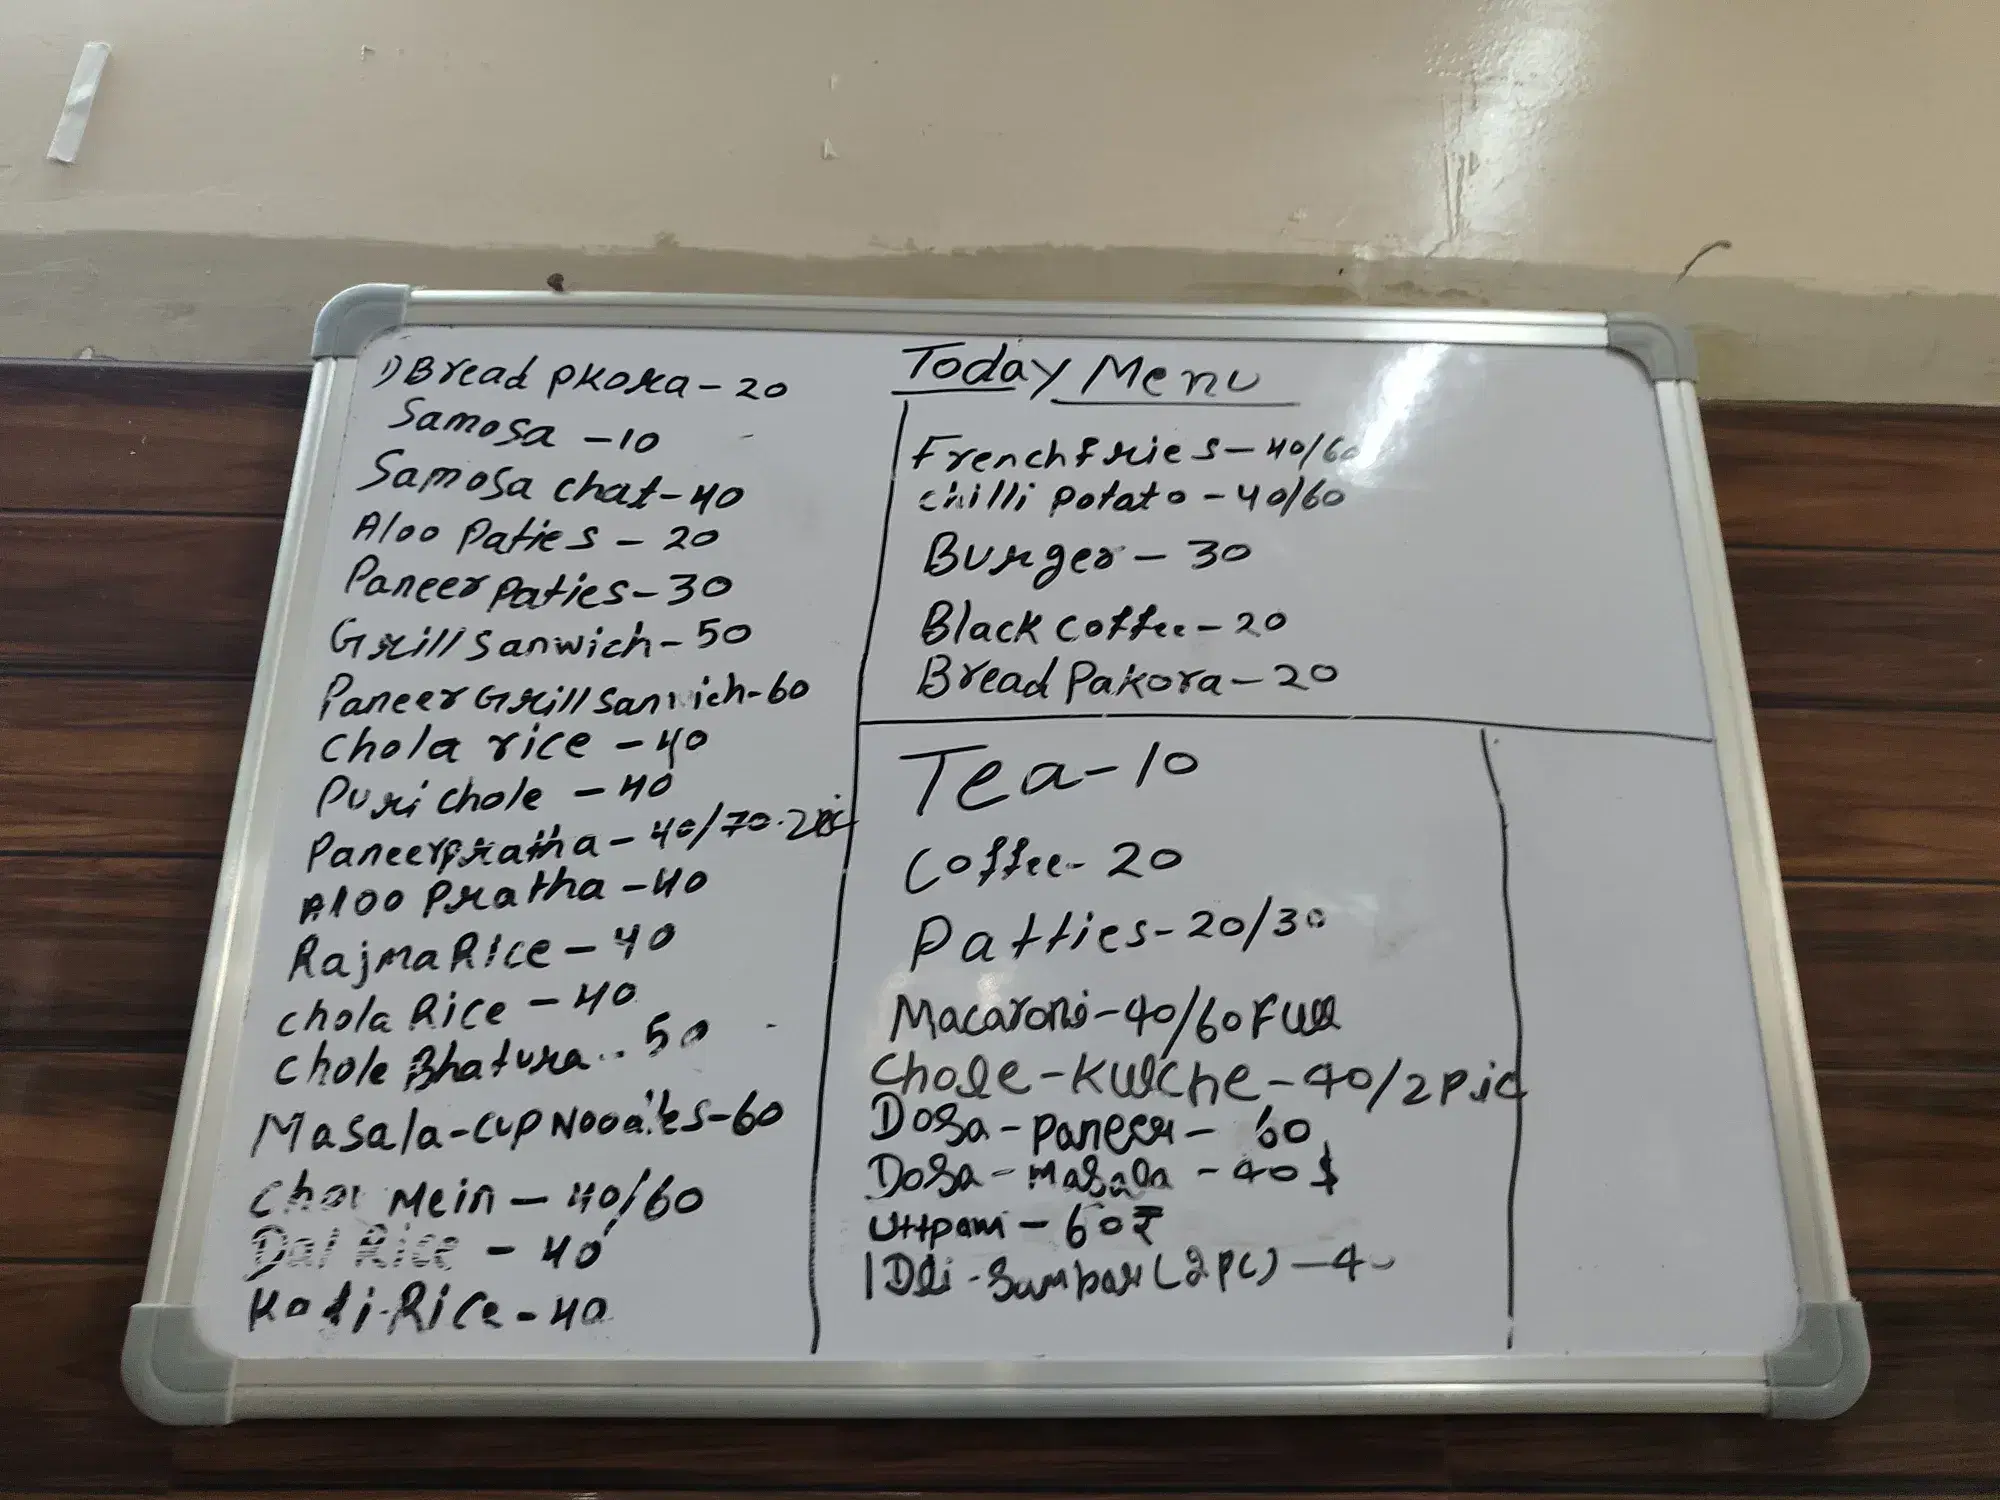 1) Bread pkora - 20
Samosa - 10
Samosa chat - 40
Aloo Paties - 20
Paneer paties - 30
Grill sanwich - 50
Paneer Grill sanwich - 60
Chola rice - 40
Puri chole - 40
Paneer pratha - 40/70.
Aloo Pratha - 40
Rajma Rice - 40
chola Rice - 40
chole Bhatura .. 50
Masala - cup Noodles - 60
Chow Mein - 40/60
Dal Rice - 40
Kadi - Rice - 40
Today Menu
French fries - 40/60
chilli potato - 40/60
Burger - 30
Black coffee - 20
Bread Pakora - 20
Tea - 10
Coffee - 20
Patties - 20/30
Macaroni - 40/60 Full
Chole - Kulche - 40/2 pic
Dosa - paneer - 60
Dosa - Masala - 40
Uttpam - 60₹
IDli - Sambar (2 PC) - 40